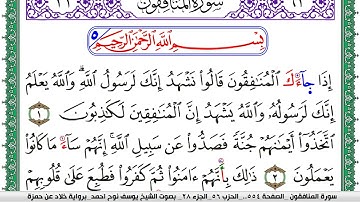 سورة المنافقون
بِسْمِ اللَّهِ الرَّحْمَٰنِ الرَّحِيمِ
إِذَا جَآءَكَ ٱلْمُنَٰفِقُونَ قَالُوا۟ نَشْهَدُ إِنَّكَ لَرَسُولُ ٱللَّهِ ۗ وَٱللَّهُ يَعْلَمُ
إِنَّكَ لَرَسُولُهُۥ وَٱللَّهُ يَشْهَدُ إِنَّ ٱلْمُنَٰفِقِينَ لَكَٰذِبُونَ ١
ٱتَّخَذُوٓا۟ أَيْمَٰنَهُمْ جُنَّةً فَصَدُّوا۟ عَن سَبِيلِ ٱللَّهِ ۚ إِنَّهُمْ سَآءَ مَا كَانُوا۟
يَعْمَلُونَ ٢ ذَٰلِكَ بِأَنَّهُمْ ءَامَنُوا۟ ثُمَّ كَفَرُوا۟ فَطُبِعَ عَلَىٰ قُلُوبِهِمْ
سورة المنافقون _الصفحة ٥٥٤.. الحزب ٥٦ الجزء ٢٨ _ بصوت الشيخ يوسف نوح احمد برواية خلاد عن حمزة